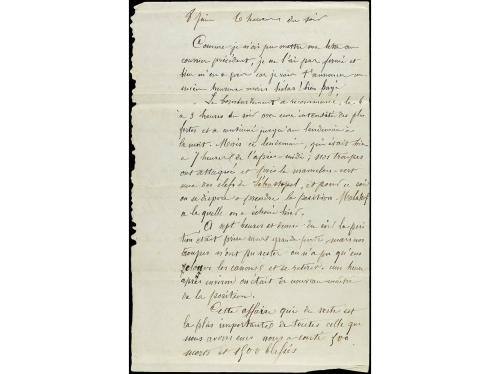 8 Juin 6 heures du soir
Comme je n'ai pu mettre ma lettre au
courrier précédent, je ne l'ai pas fermé et
bien m'en a pris car je viens t'annoncer un
succès heureux mais hélas! bien payé
Le bombardement a recommencé, le 6
à 3 heures du soir avec une intensité des plus
fortes et a continué jusqu'au lendemain à
la nuit. Mais ce lendemain, qui était hier
à 7 heures de l'après-midi, nos troupes
ont attaqué et pris le mamelon-vert
une des clefs de Sébastopol, et pour ce soir
on se dispose à prendre la position Malakof
à laquelle on a échoué hier.
A sept heures et demie du soir la posi
tion était prise mais nos
troupes n'ont pu rester on n'a pu qu'en
clouer les canons et se retirer. une heure
après environ on était de nouveau maître
de la position.
Cette affaire qui de reste est
la plus importantes de toutes celle que
nous avons eues nous a couté 500
morts et 1500 blessés